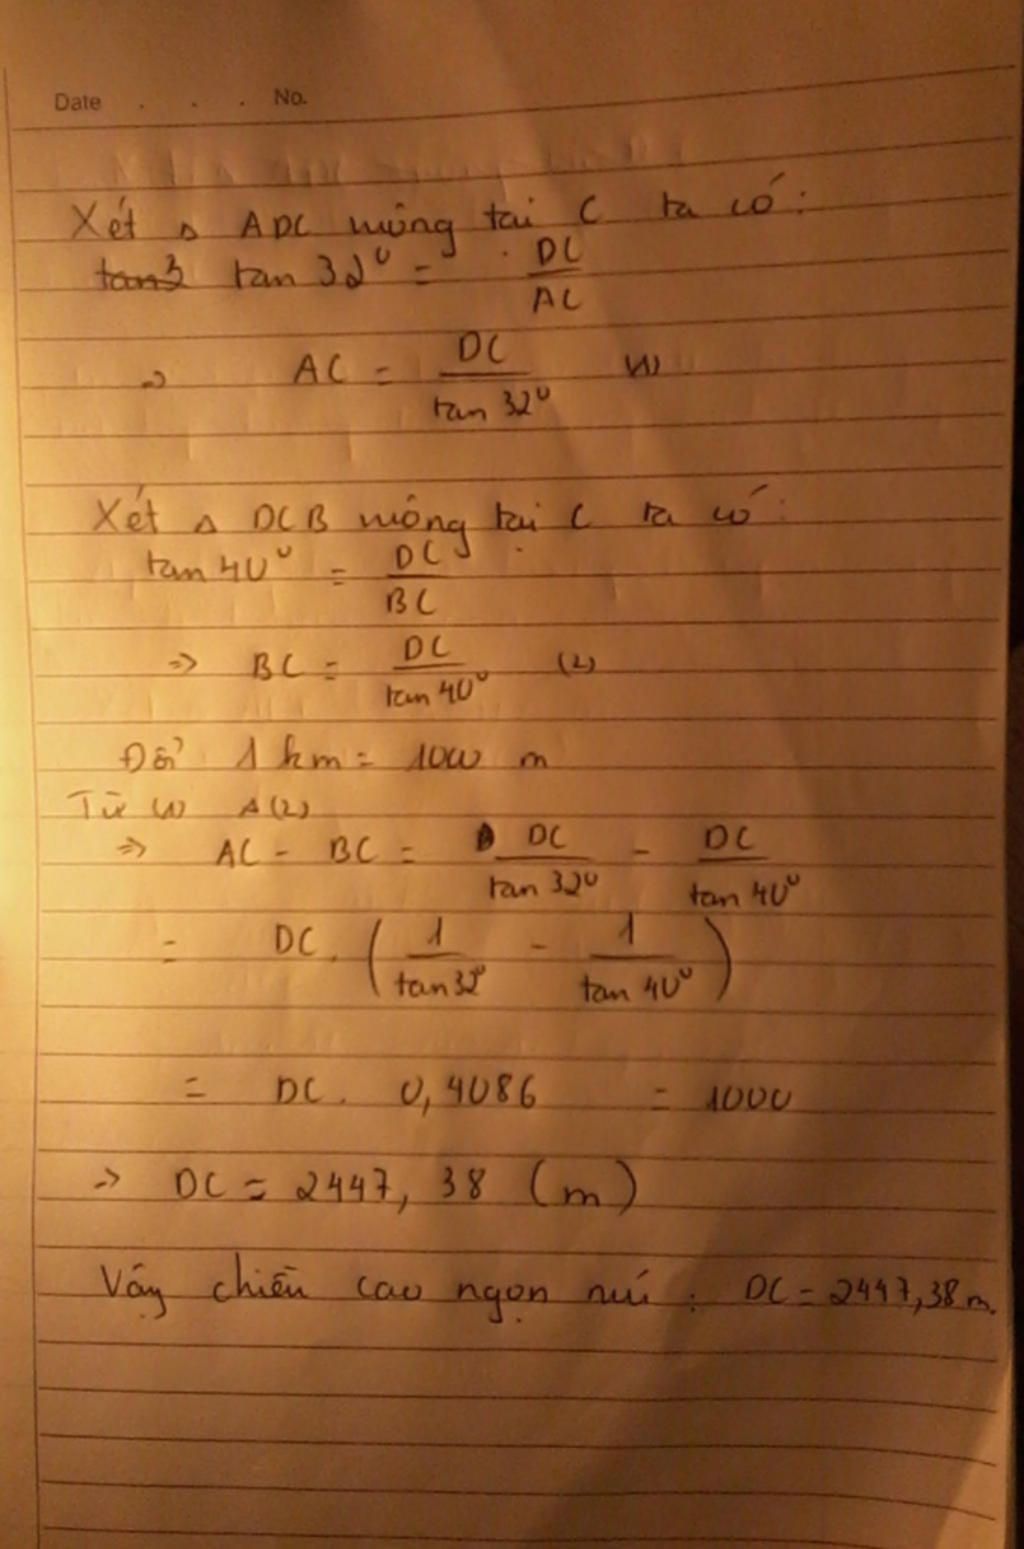 Date . . . No.
Xét Δ ADC vuông tại C ta có:
tan3 tan 32° = DC/AC
=> AC = DC/tan 32° (1)
Xét Δ DCB vuông tại C ta có:
tan 40° = DC/BC
=> BC = DC/tan 40° (2)
Đổi 1 km = 1000 m
Từ (1) (2)
=> AC - BC = DC/tan 32° - DC/tan 40°
= DC. (1/tan 32° - 1/tan 40°)
= DC. 0,4086 = 1000
=> DC = 2447, 38 (m)
Vậy chiều cao ngọn núi : DC = 2447,38 m.